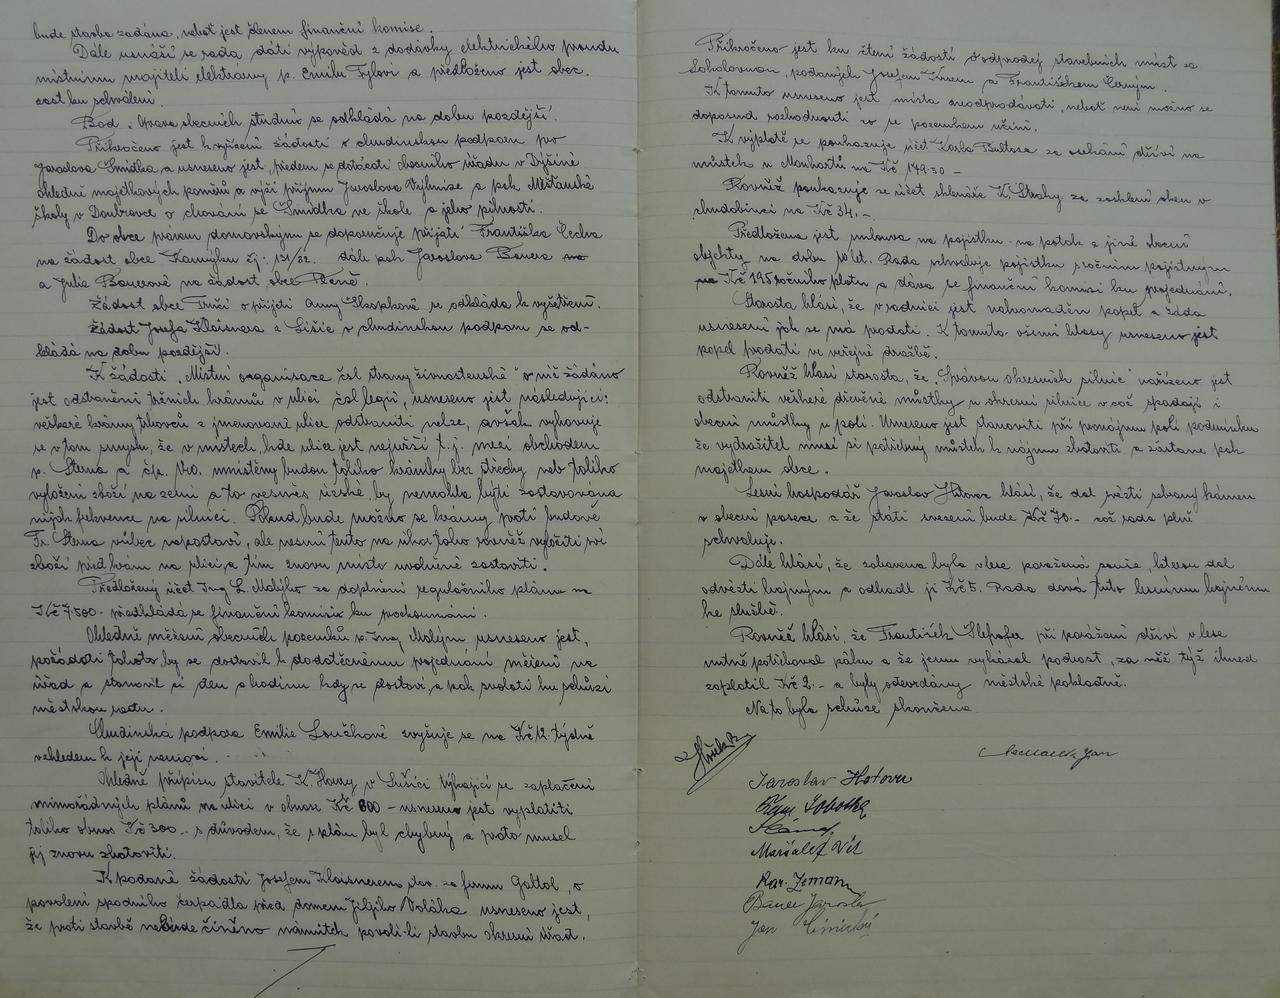 bude stavba zadána, neboť jest členem finanční komise.
Dále usnáší se rada dáti výpověď z dodávky elektrického proudu
místnímu majiteli elektrárny p. Emilu Tylovi a předloženo jest obec.
zast. ku schválení.
Bod „Oprava obecních studní“ se odkládá na dobu pozdější.
Přikročeno jest k vyřízení žádosti o chudinskou podporu pro
Jaroslava Šmídka a usneseno jest, předem se dotázati obecního úřadu v Dýšině
ohledně majetkových poměrů a výši příjmu Jaroslava a pak Měšťanské
školy v Doubravce o chování se Šmídka ve škole a jeho pilnosti.
Do obce právem domovským se doporučuje přijati Františka Čecha
na žádost obce Kamýku čj. 131/32. dále pak Jaroslava Bauera
a Julii Bauerové na žádost obce Plzně.
Žádost obce o přijetí Anny Skopkové se odkládá k vyšetření.
Žádost Josefa Kloisnera z o chudinskou podporu se od-
kládá na dobu pozdější.
K žádosti „Místní organisace čsl strany živnostenské“ o níž žádáno
jest odstranění tržních krámů v ulici čsl legií, usneseno jest následující:
veškeré krámy trhovců z jmenované ulice odstraniti nelze, avšak vyhovuje
se v tom smyslu, že v místech, kde ulice jest nejužší t. j. mezi obchodem
p. Šterna a čp. 140. umístěny budou toliko krámky bez střechy neb toliko
vyložení zboží na zemi a to vesměs úzké, by nemohla býti zastavována
nijak frekvence na silnici. Pokud bude možno se krámy proti budově
Fr. Šterna vůbec nepostaví, ale nesmí tento na úkor toho rovněž vyložiti své
zboží před krám na ulici, a tím znovu místo uvolněné zastaviti.
Předložený účet Ing. L. Malého za doplnění regulačního plánu na
Kč 7.500.- předkládá se finanční komisi ku prozkoumání.
Ohledně měření obecních pozemků p. Ing. Malým usneseno jest,
požádati tohoto, by se dostavil k dodatečnému projednání měření na
úřad a stanovil si den a hodinu kdy se dostaví, a pak svolati ku schůzi
městskou radu.
Chudinská podpora Emilie Loužkové zvyšuje se na Kč 12. týdně
vzhledem k její nemoci.
Ohledně přípisu stavitele K. Havry v Sušici týkající se zaplacení
mimořádných plánů na ulici v obnose Kč 600 – usneseno jest vyplatiti
toliko obnos Kč 300.- s důvodem, že i plán byl chybný a proto musel
jej znovu zhotoviti.
K podané žádosti Josefem Kloisnerem stav. za firmu o
povolení spodního čerpadla před domem Jiljího Voláka usneseno jest,
že proti stavbě nebude činěno námitek povolí-li stavbu Okresní úřad.
Přikročeno jest ku čtení žádostí o odprodej stavebních míst za
Sokolovnou, podaných Josefem a Františkem Černým.
K tomuto usneseno jest místa neodprodávati, neboť není možno se
doposud rozhodnouti co se pozemkem učiní.
K výplatě se poukazuje účet Karla Bultasa za osekání dříví na
můstek u Monhartů na Kč 149.50 –
Rovněž poukazuje se účet sklenáře K. Strahy za zasklení oken v
chudobinci na Kč 34.–
Předložena jest smlouva na pojistku na potok a jiné obecní
objekty na dobu 10 let. Rada schvaluje pojistku s ročním pojistným
Kč 195 ročního platu a dává se finanční komisi ku projednání.
Starosta hlásí, že v radnici jest nahromaděn popel a žádá
usnesení jak se má prodati. K tomuto všemi hlasy usneseno jest
popel prodati ve veřejné dražbě.
Rovněž hlásí starosta, že „Správou okresních silnic“ nařízeno jest
odstraniti veškeré dřevěné můstky u okresní silnice v což spadají i
obecní můstky u polí. Usneseno jest stanoviti při pronájmu polí podmínku
že vydražitel musí si potřebný můstek k nájmu zhotoviti a zůstane pak
majetkem obce.
Lesní hospodář Jaroslav Hotovec hlásí, že dal svésti sebraný kámen
v obecní pasece a že státi svezení bude Kč 70.– což rada plně
schvaluje.
Dále hlásí, že zabavena byla v lese poražená sousie, kterou dal
odvésti hajným a odhadl ji Kč 5. Rada dává tuto lesnímu hajnému
ke službě.
Rovněž hlásí, že František při porážení dříví v lese
nutně potřeboval páku a že jemu vykázal podrost, za něž týž ihned
zaplatil Kč 2.– a byly odevzdány městské pokladně.
Na to byla schůze skončena
Jaroslav Hotovec
Sobotka
Maršálek Vít
Kar. Zeman
Bauer Jaroslav
Jan